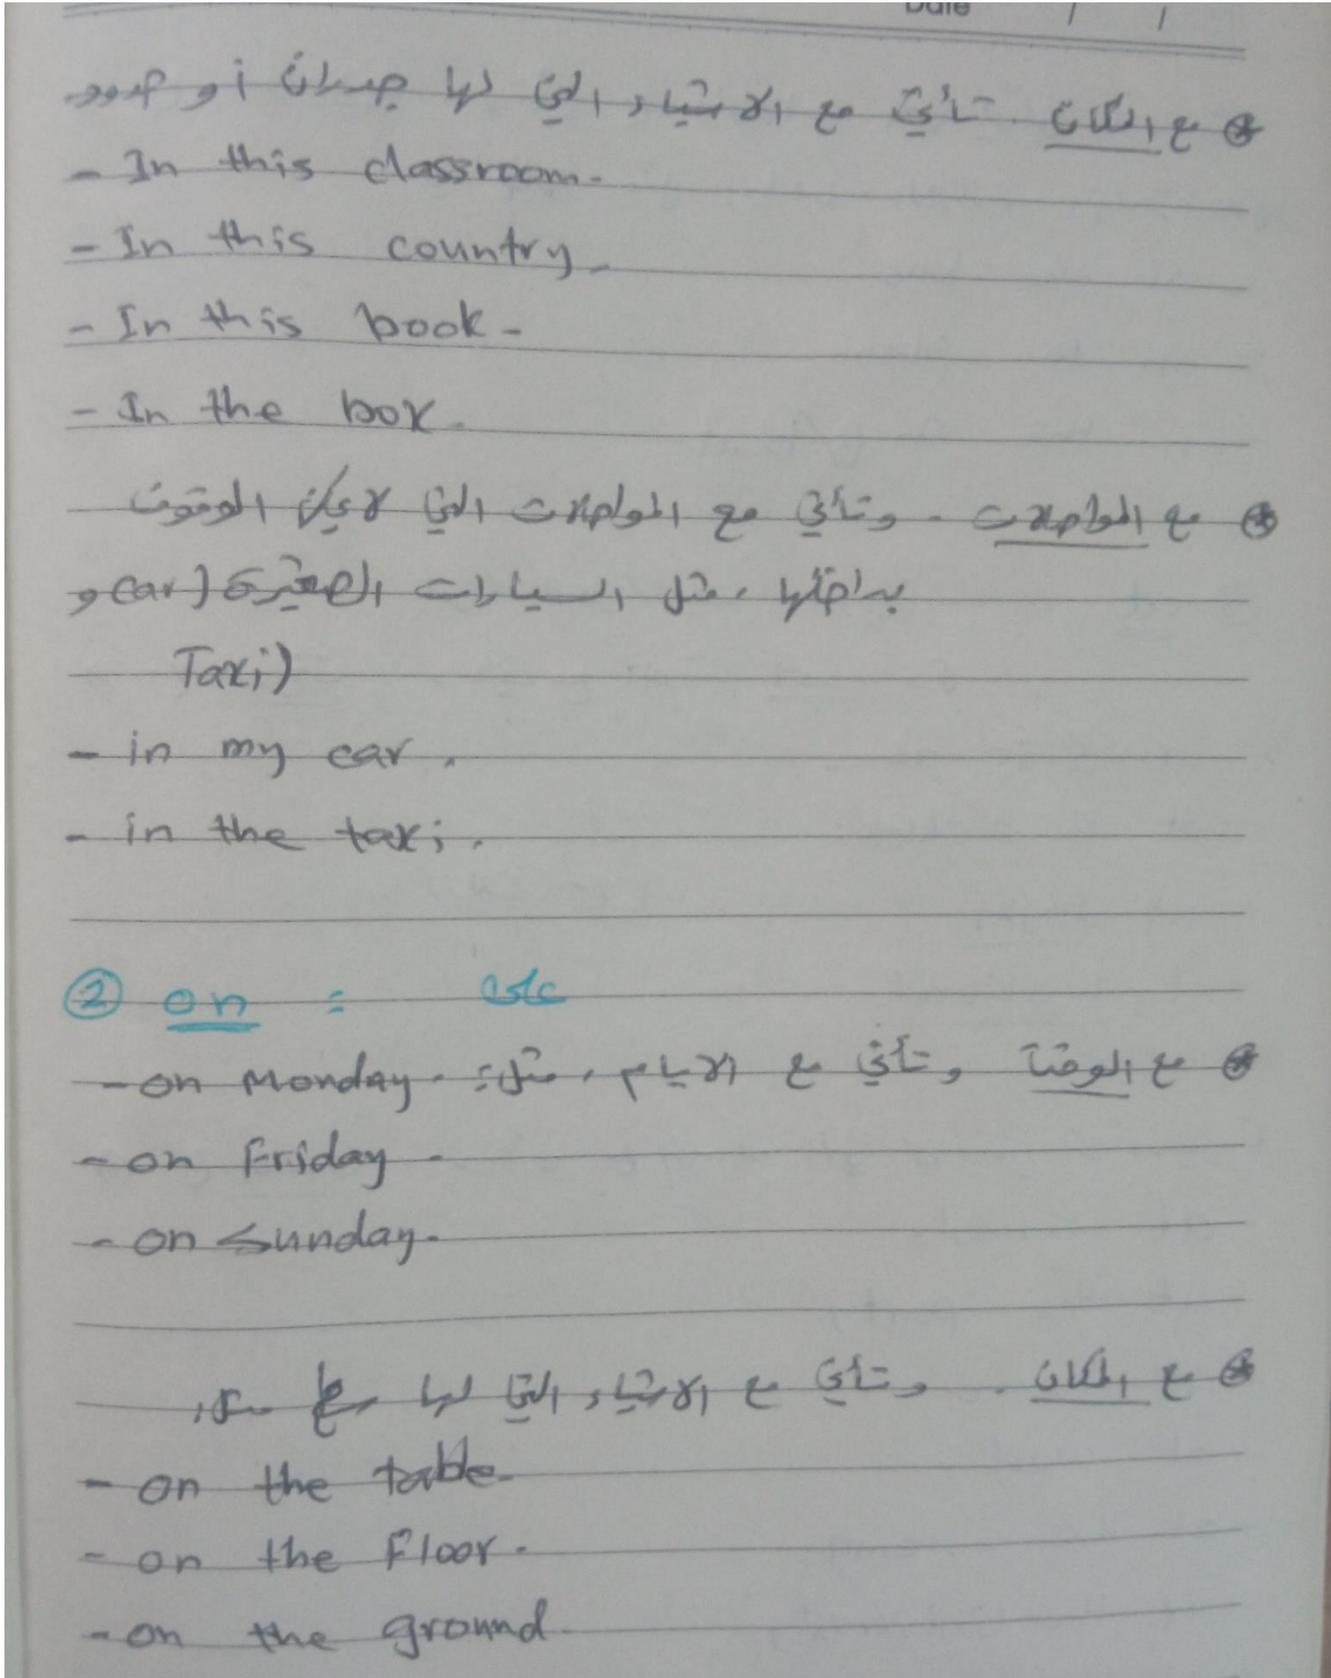 Date / /
⊛ مع المكان. تأتي مع الاشياء التي لها جدران أو حدود
- In this classroom.
- In this country.
- In this book.
- In the box.
⊛ مع المواصلات. وتأتي مع المواصلات التي لا يمكن الوقوف
بداخلها، مثل السيارات الصغيرة (car و
Taxi)
- in my car.
- in the taxi.
② on = على
⊛ مع الوقت وتأتي مع الايام، مثل: - on Monday.
- on Friday.
- on Sunday.
⊛ مع المكان. وتأتي مع الاشياء التي لها سطح
- on the table.
- on the Floor.
- on the ground